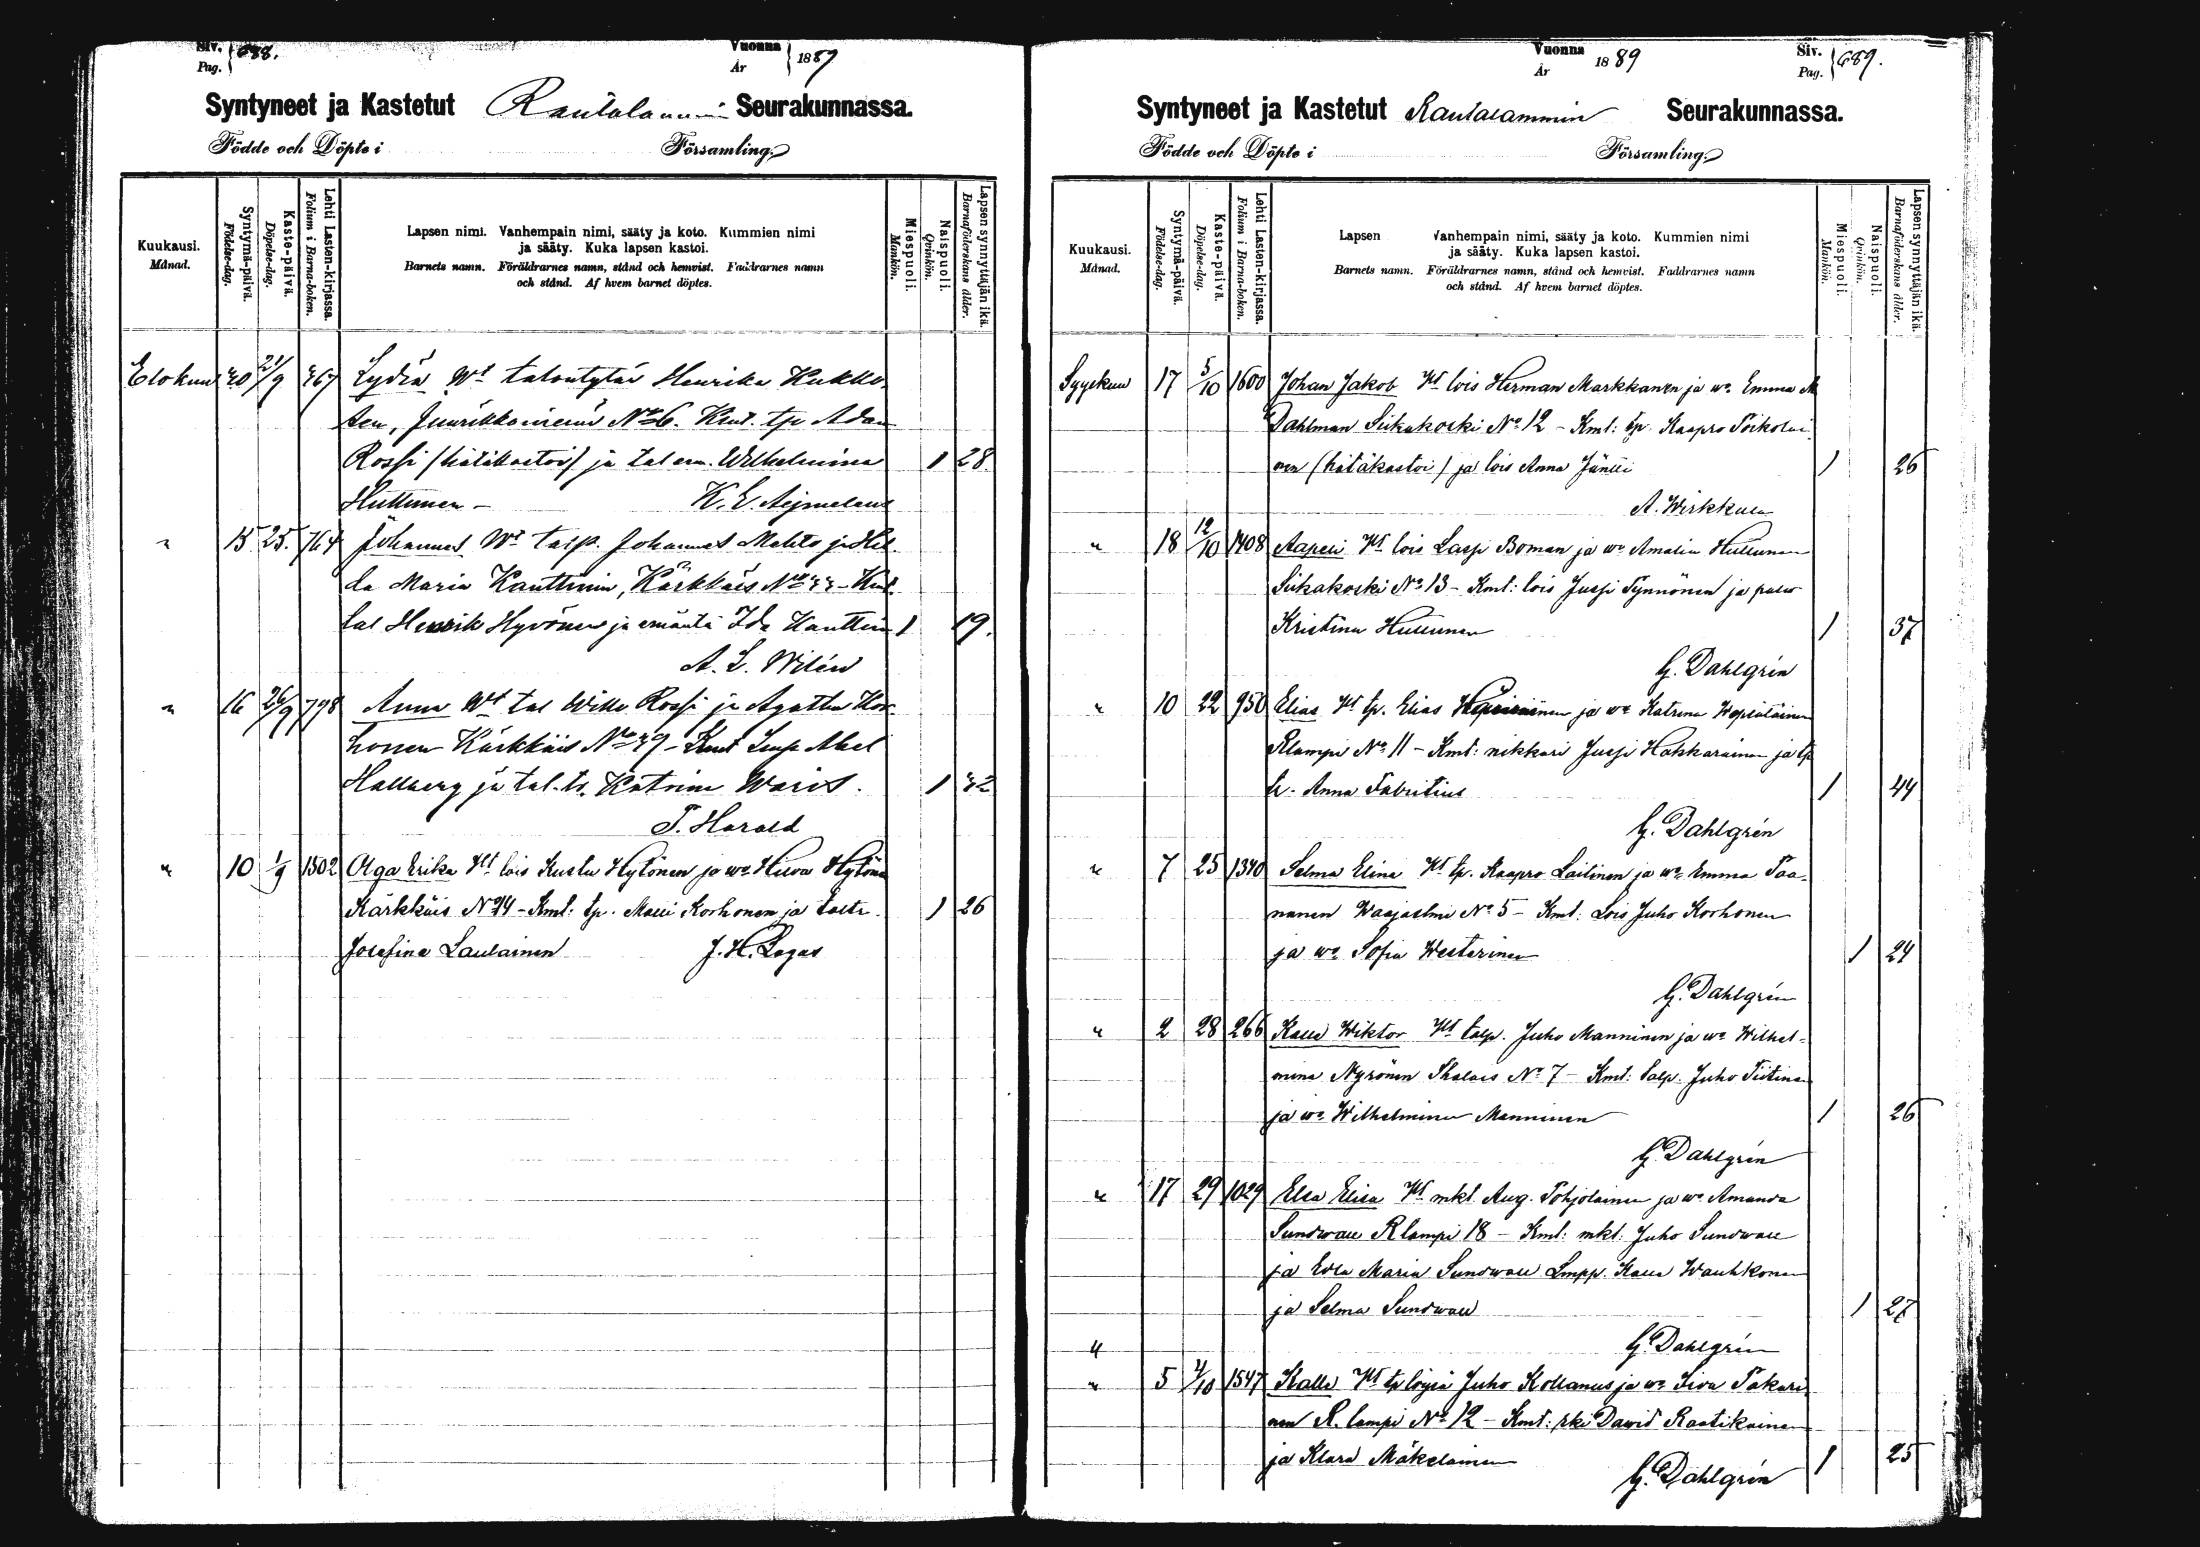 Siv. Pag. 688. Vuonna År 1889
Syntyneet ja Kastetut Rautalammin Seurakunnassa.
Födde och Döpte i Församling.
Kuukausi. Månad.
Syntymä-päivä. Födelse-dag.
Kaste-päivä. Döpelse-dag.
Lehti Lasten-kirjassa. Folium i Barna-boken.
Lapsen nimi. Vanhempain nimi, sääty ja koto. Kummien nimi
ja sääty. Kuka lapsen kastoi.
Barnets namn. Föräldrarnes namn, stånd och hemvist. Faddrarnes namn
och stånd. Af hvem barnet döptes.
Miespuoli. Mankön.
Naispuoli. Qvinkön.
Lapsen synnyttäjän ikä. Barnaföderskans ålder.
Elokuu 20 21/9 767 Lydia Wt talontytär Henrika Kukko
nen, Juurikkoniemi No 6. Kmt. tp Adam
Rossi (hätäkastoi) ja tal em. Wilhelmina 1 28
Huttunen - K. E. Aejmelaeus
" 15 25. 764 Johannes Wt talp. Johannes Mehto ja Hil
da Maria Kauttinin, Kärkkäis No 33 - Kmt.
tal Henrik Hyvönen ja emäntä Ida Kauttin 1 19.
A. L. Wilén
" 16 26/9 798 Anna Wt tal Wille Rossi ja Agatha Kor
honen Kärkkäis No 39 - Kmt Smp Abel
Hallberg ja tal. tr. Katrina Waris. 1 32
T. Harald
" 10 1/9 1502 Olga Erika Wt lois Kustu Hytönen ja wo Hilva Hytönen
Kärkkäis No 24 - Kmt: tp. Matti Korhonen ja taltr. 1 26
Josefina Laulainen J. H. Lagus
Vuonna År 1889 Siv. Pag. 689.
Syntyneet ja Kastetut Rautalammin Seurakunnassa.
Födde och Döpte i Församling.
Kuukausi. Månad.
Syntymä-päivä. Födelse-dag.
Kaste-päivä. Döpelse-dag.
Lehti Lasten-kirjassa. Folium i Barna-boken.
Lapsen Vanhempain nimi, sääty ja koto. Kummien nimi
ja sääty. Kuka lapsen kastoi.
Barnets namn. Föräldrarnes namn, stånd och hemvist. Faddrarnes namn
och stånd. Af hvem barnet döptes.
Miespuoli. Mankön.
Naispuoli. Qvinkön.
Lapsen synnyttäjän ikä. Barnaföderskans ålder.
Syyskuu 17 5/10 1600 Johan Jakob Wt lois Herman Markkanen ja wo Emma M
Dahlman Siikakoski No 12 - Kmt: tp. Kaapro Toikolai
nen (hätäkastoi) ja lois Anna Jäntti 1 26
A. Wirkkula
" 18 12/10 1408 Aapeli Wt lois Lassi Boman ja wo Amalia Huttunen
Siikakoski No 13 - Kmt: lois Jussi Tynnönen ja
Kristina Huttunen 1 37
G. Dahlgrén
" 10 22 950 Elias Wt tp. Elias ja wo Katrina
Rlampi No 11 - Kmt: nikkari Jussi Hakkarainen ja tp
tr. Anna Fabritius 1 44
G. Dahlgrén
" 7 25 1340 Selma Elina Wt tp. Kaapro Laitinen ja wo Emma Paa-
nanen Waajasalmi No 5 - Kmt: Lois Juho Korhonen
ja wo Sofia Westerinen 1 24
G. Dahlgrén
" 2 28 266 Kalle Wiktor Wt talp. Juho Manninen ja wo Wilhel-
mina Nyrönen No 7 - Kmt: talp. Juho Tiitinen
ja wo Wilhelmina Manninen 1 26
G. Dahlgrén
" 17 29 1029 Elsa Elisa Wt mkt. Aug. Pohjolainen ja wo Amanda
Sundwall R lampi 18 - Kmt: mkt: Juho Sundwall
ja Eva Maria Sundwall Smpp. Kalle Wauhkonen
ja Selma Sundwall 1 27
" G. Dahlgrén
" 5 4/10 1547 Kalle Wt tp Juho Kollanus ja wo Siva Pakari
nen R. lampi No 12 - Kmt: rki Dawid Raatikainen
ja Klara Mäkeläinen 1 25
G. Dahlgrén